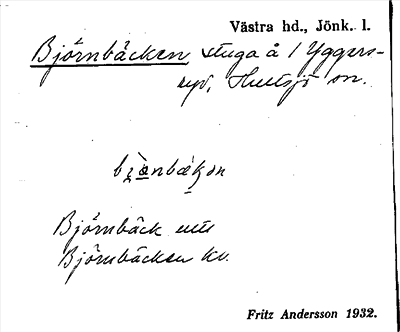 Västra hd., Jönk. l.
Björnbäcken stuga å 1 Yggers-
ryd, Hultsjö sn.
Björnbäck
Björnbäcken kv.
Fritz Andersson 1932.